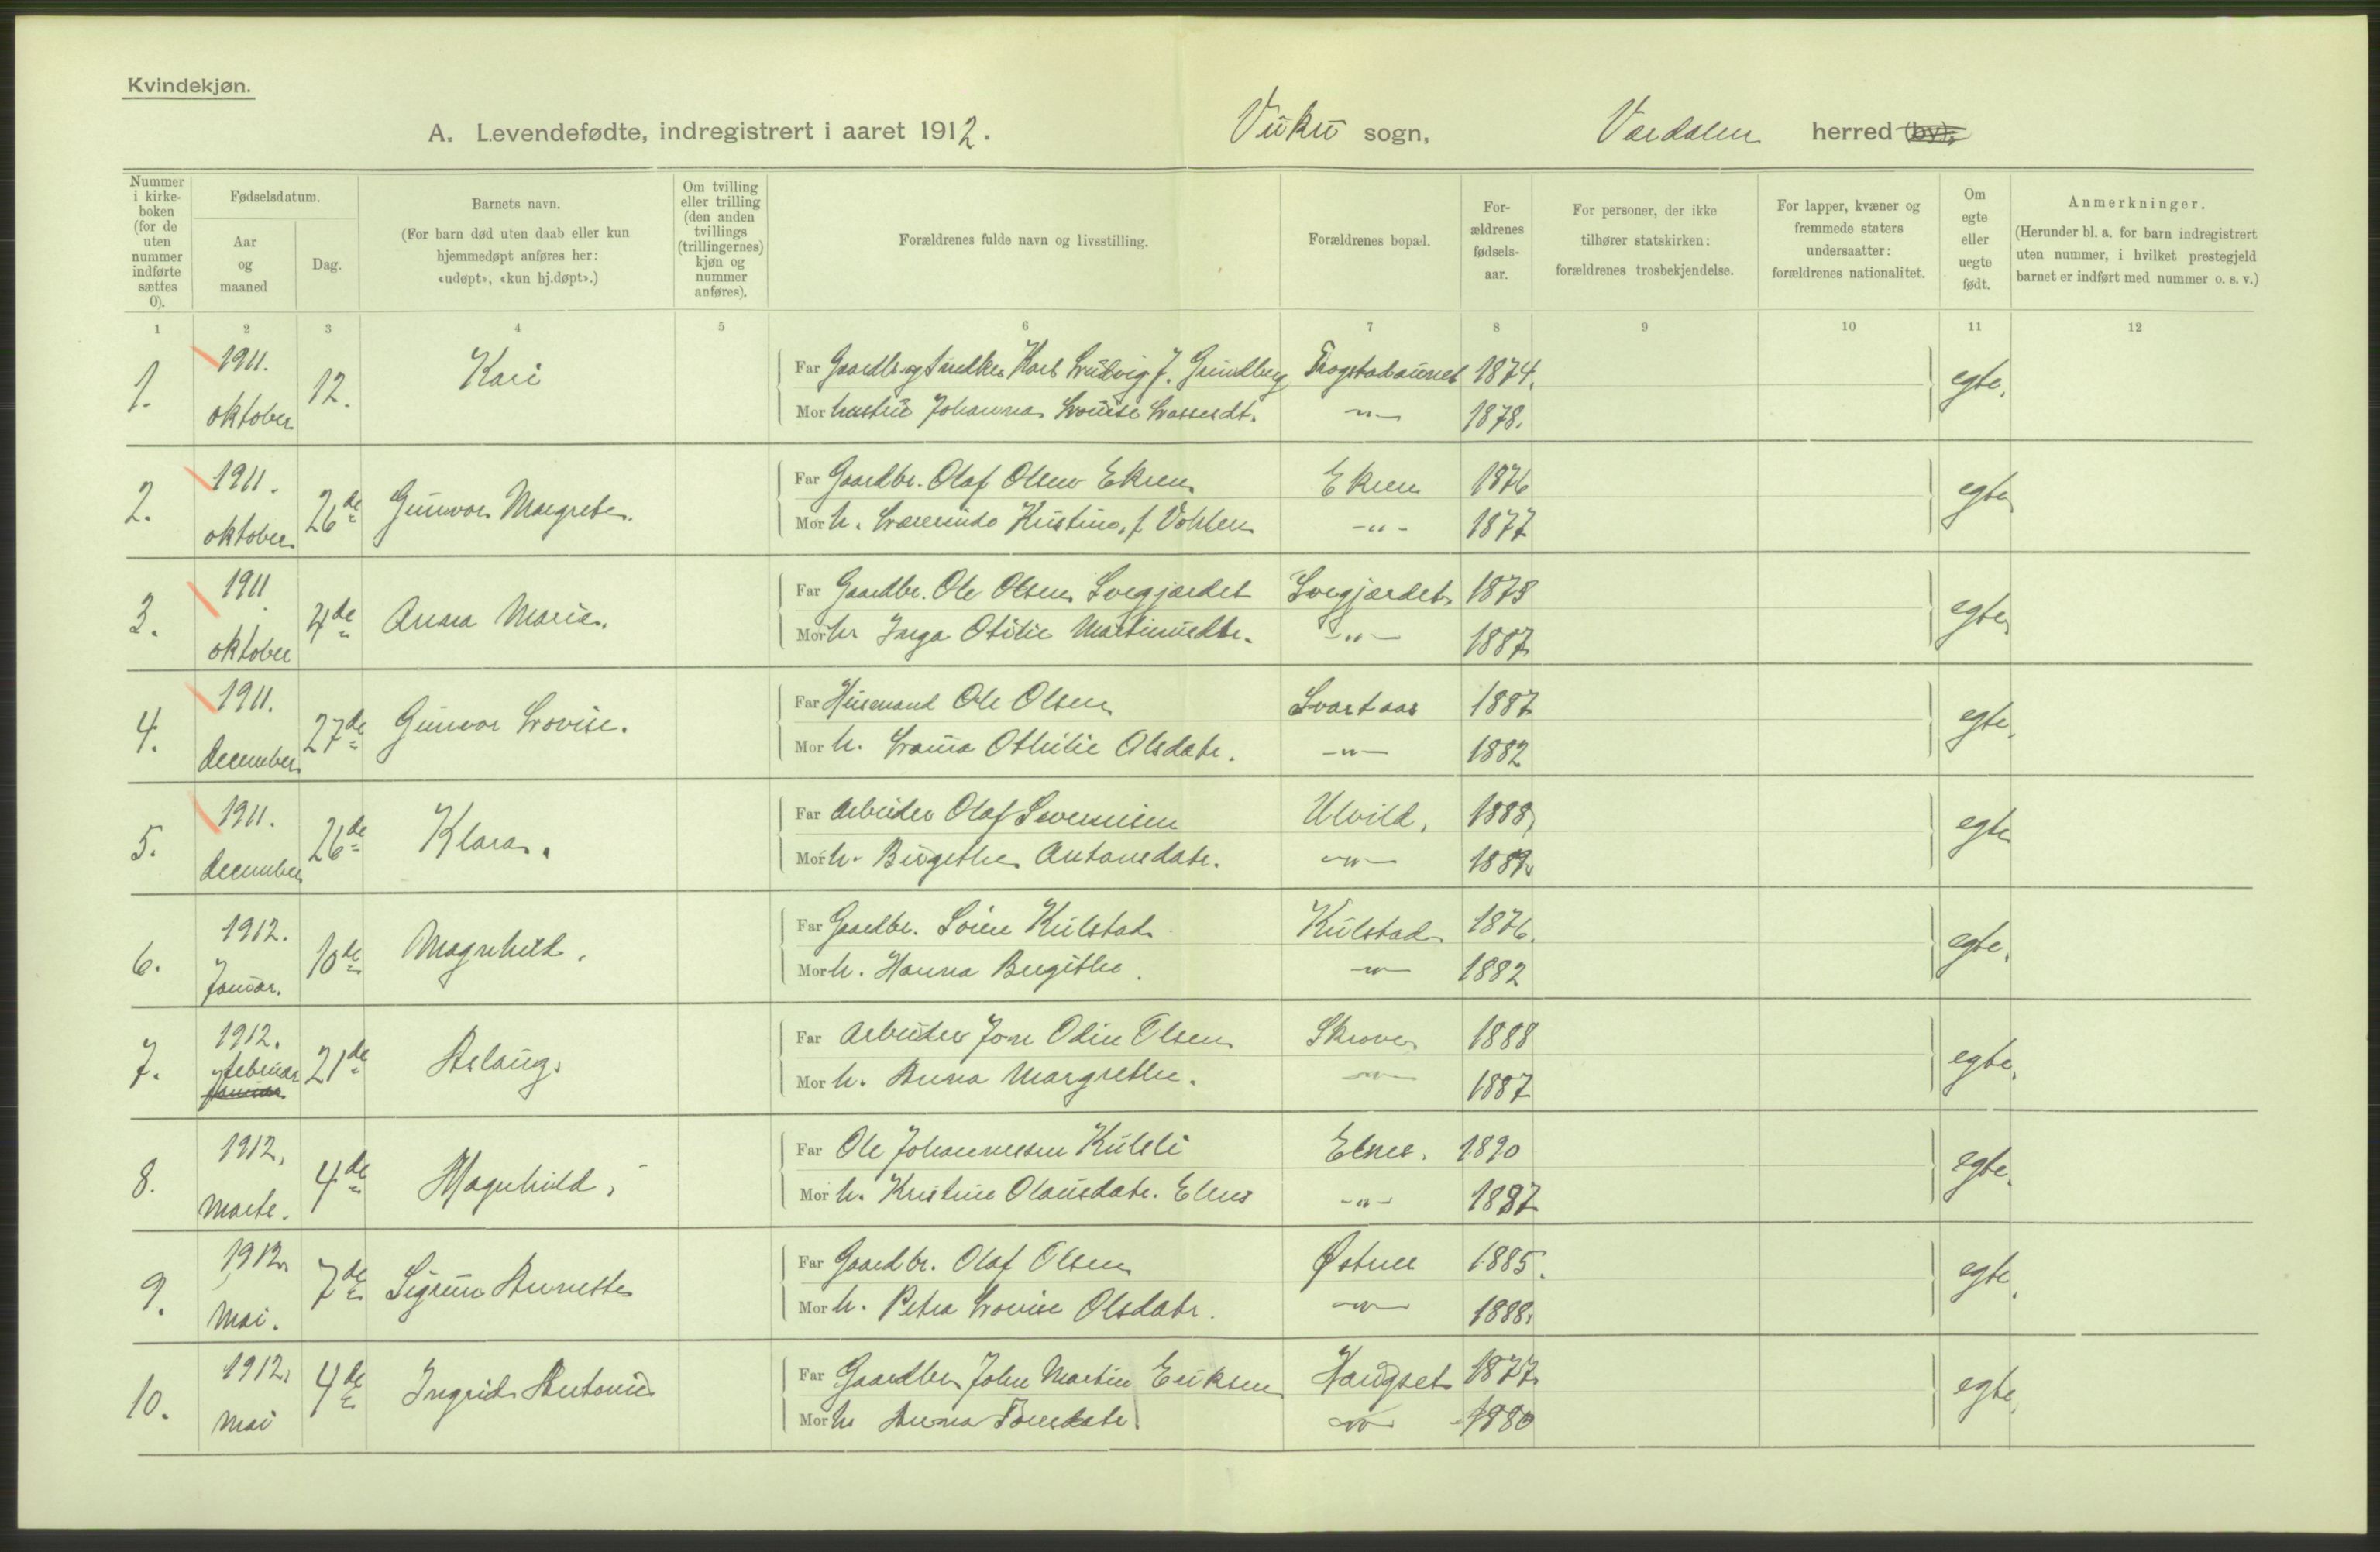 Kvindekjøn.
A. Levendefødte, indregistrert i aaret 1912. Vuku sogn, Værdalen herred (by).
Nummer i kirke-boken (for de uten nummer indførte sættes 0).
Fødselsdatum.
Aar og maaned
Dag.
Barnets navn.
(For barn død uten daab eller kun hjemmedøpt anføres her: «udøpt», «kun hj.døpt».)
Om tvilling eller trilling (den anden tvillings (trillingernes) kjøn og nummer anføres).
Forældrenes fulde navn og livsstilling.
Forældrenes bopæl.
For-ældrenes fødsels-aar.
For personer, der ikke tilhører statskirken: forældrenes trosbekjendelse.
For lapper, kvæner og fremmede staters undersaatter: forældrenes nationalitet.
Om egte eller uegte født.
Anmerkninger.
(Herunder bl. a. for barn indregistrert uten nummer, i hvilket prestegjeld barnet er indført med nummer o. s. v.)
1 2 3 4 5 6 7 8 9 10 11 12
1. 1911. oktober 12. Kari
Far Gaardbr. og Snedker Karl Ludvig J. Grundberg 1874.
Mor hustru Johanna Lovise 1878.
egte.
2. 1911. oktober 26de Gunvor Margrete.
Far Gaardbr. Olaf Olsen Ekren Ekren 1876
Mor h. Kristine, f. -"- 1877
egte
3. 1911. oktober 4de Anna Marie.
Far Gaardbr. Ole Olsen Svegjærdet Svegjærdet 1878
Mor h. Inga Otilie -"- 1887
egte
4. 1911. december 27de Gunvor Lovise.
Far Husmand Ole Olsen Svartaas 1887
Mor h. Othilie Olsdatr. -"- 1882
egte.
5. 1911. december 26de Klara.
Far Arbeider Olaf Sevaldsen Ulvild, 1888,
Mor h. Birgithe Antonsdatr. -"- 1889.
egte
6. 1912. Januar. 10de Magnhild.
Far Gaardbr. Kulstad Kulstad 1876.
Mor h. Hanna Birgithe. -"- 1882
egte.
7. 1912. februar januar. 21de Aslaug.
Far Arbeider Jon Odin Olsen Skrove 1888
Mor h. Anna Margrethe. -"- 1887
egte.
8. 1912. Marts. 4de Magnhild,
Far Ole Johannessen Kulsli Elnes. 1890
Mor h. Kristine Olausdatr. Elnes -"- 1887
egte.
9. 1912. Mai. 7de Sigrun Annette
Far Gaardbr. Olaf Olsen Østnes 1885.
Mor h. Petra Lovise Olsdatr. -"- 1888.
egte.
10. 1912. Mai 4de Ingrid Antonie
Far Gaardbr. John Martin Eriksen Haugset 1877.
Mor h. Anna -"- 1880
egte.